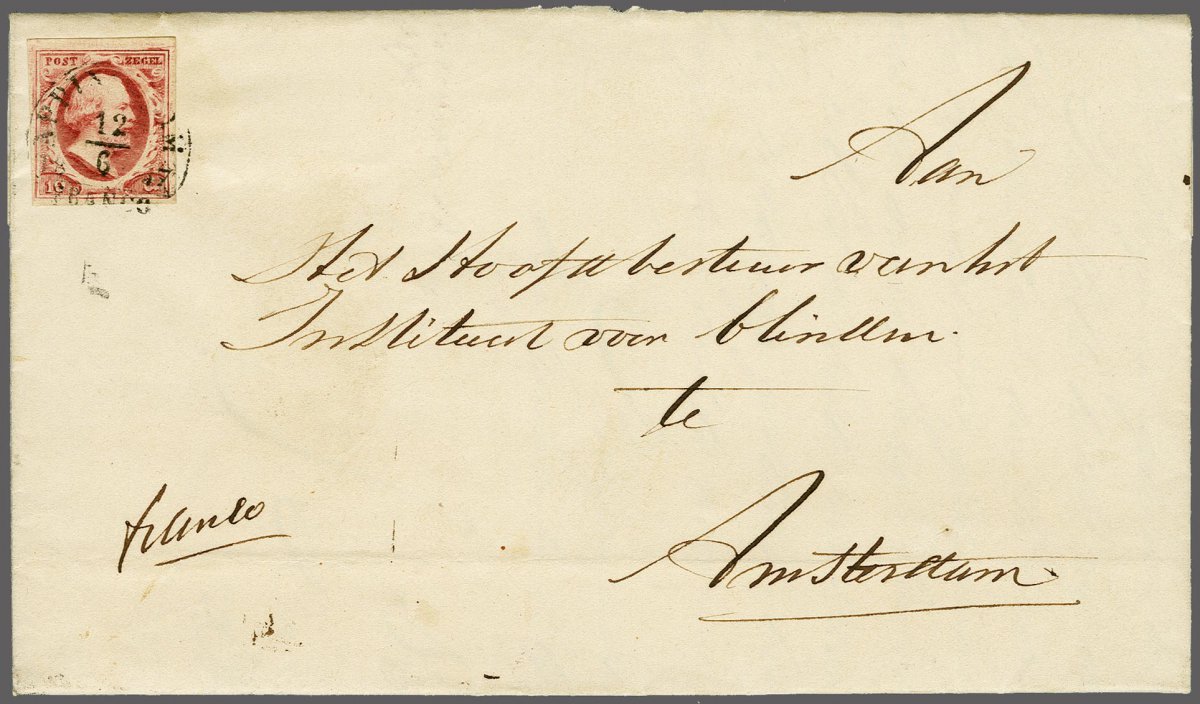 POST ZEGEL
12
6
FRANCO
Aan
Het Hoofdbestuur van het
Instituut voor blinden.
te
Amsterdam
franco